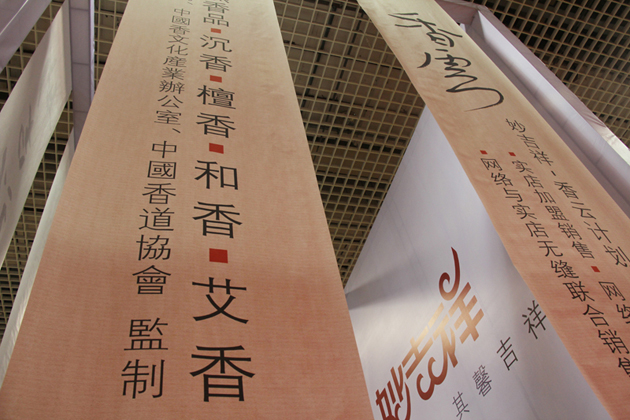 香品▪沉香▪檀香▪和香▪艾香
中國香文化産業辦公室、中國香道協會 監制
香雲
妙吉祥-香云计划
▪实店加盟销售▪网络
▪网络与实店无缝联合销售
妙吉祥
其馨吉祥